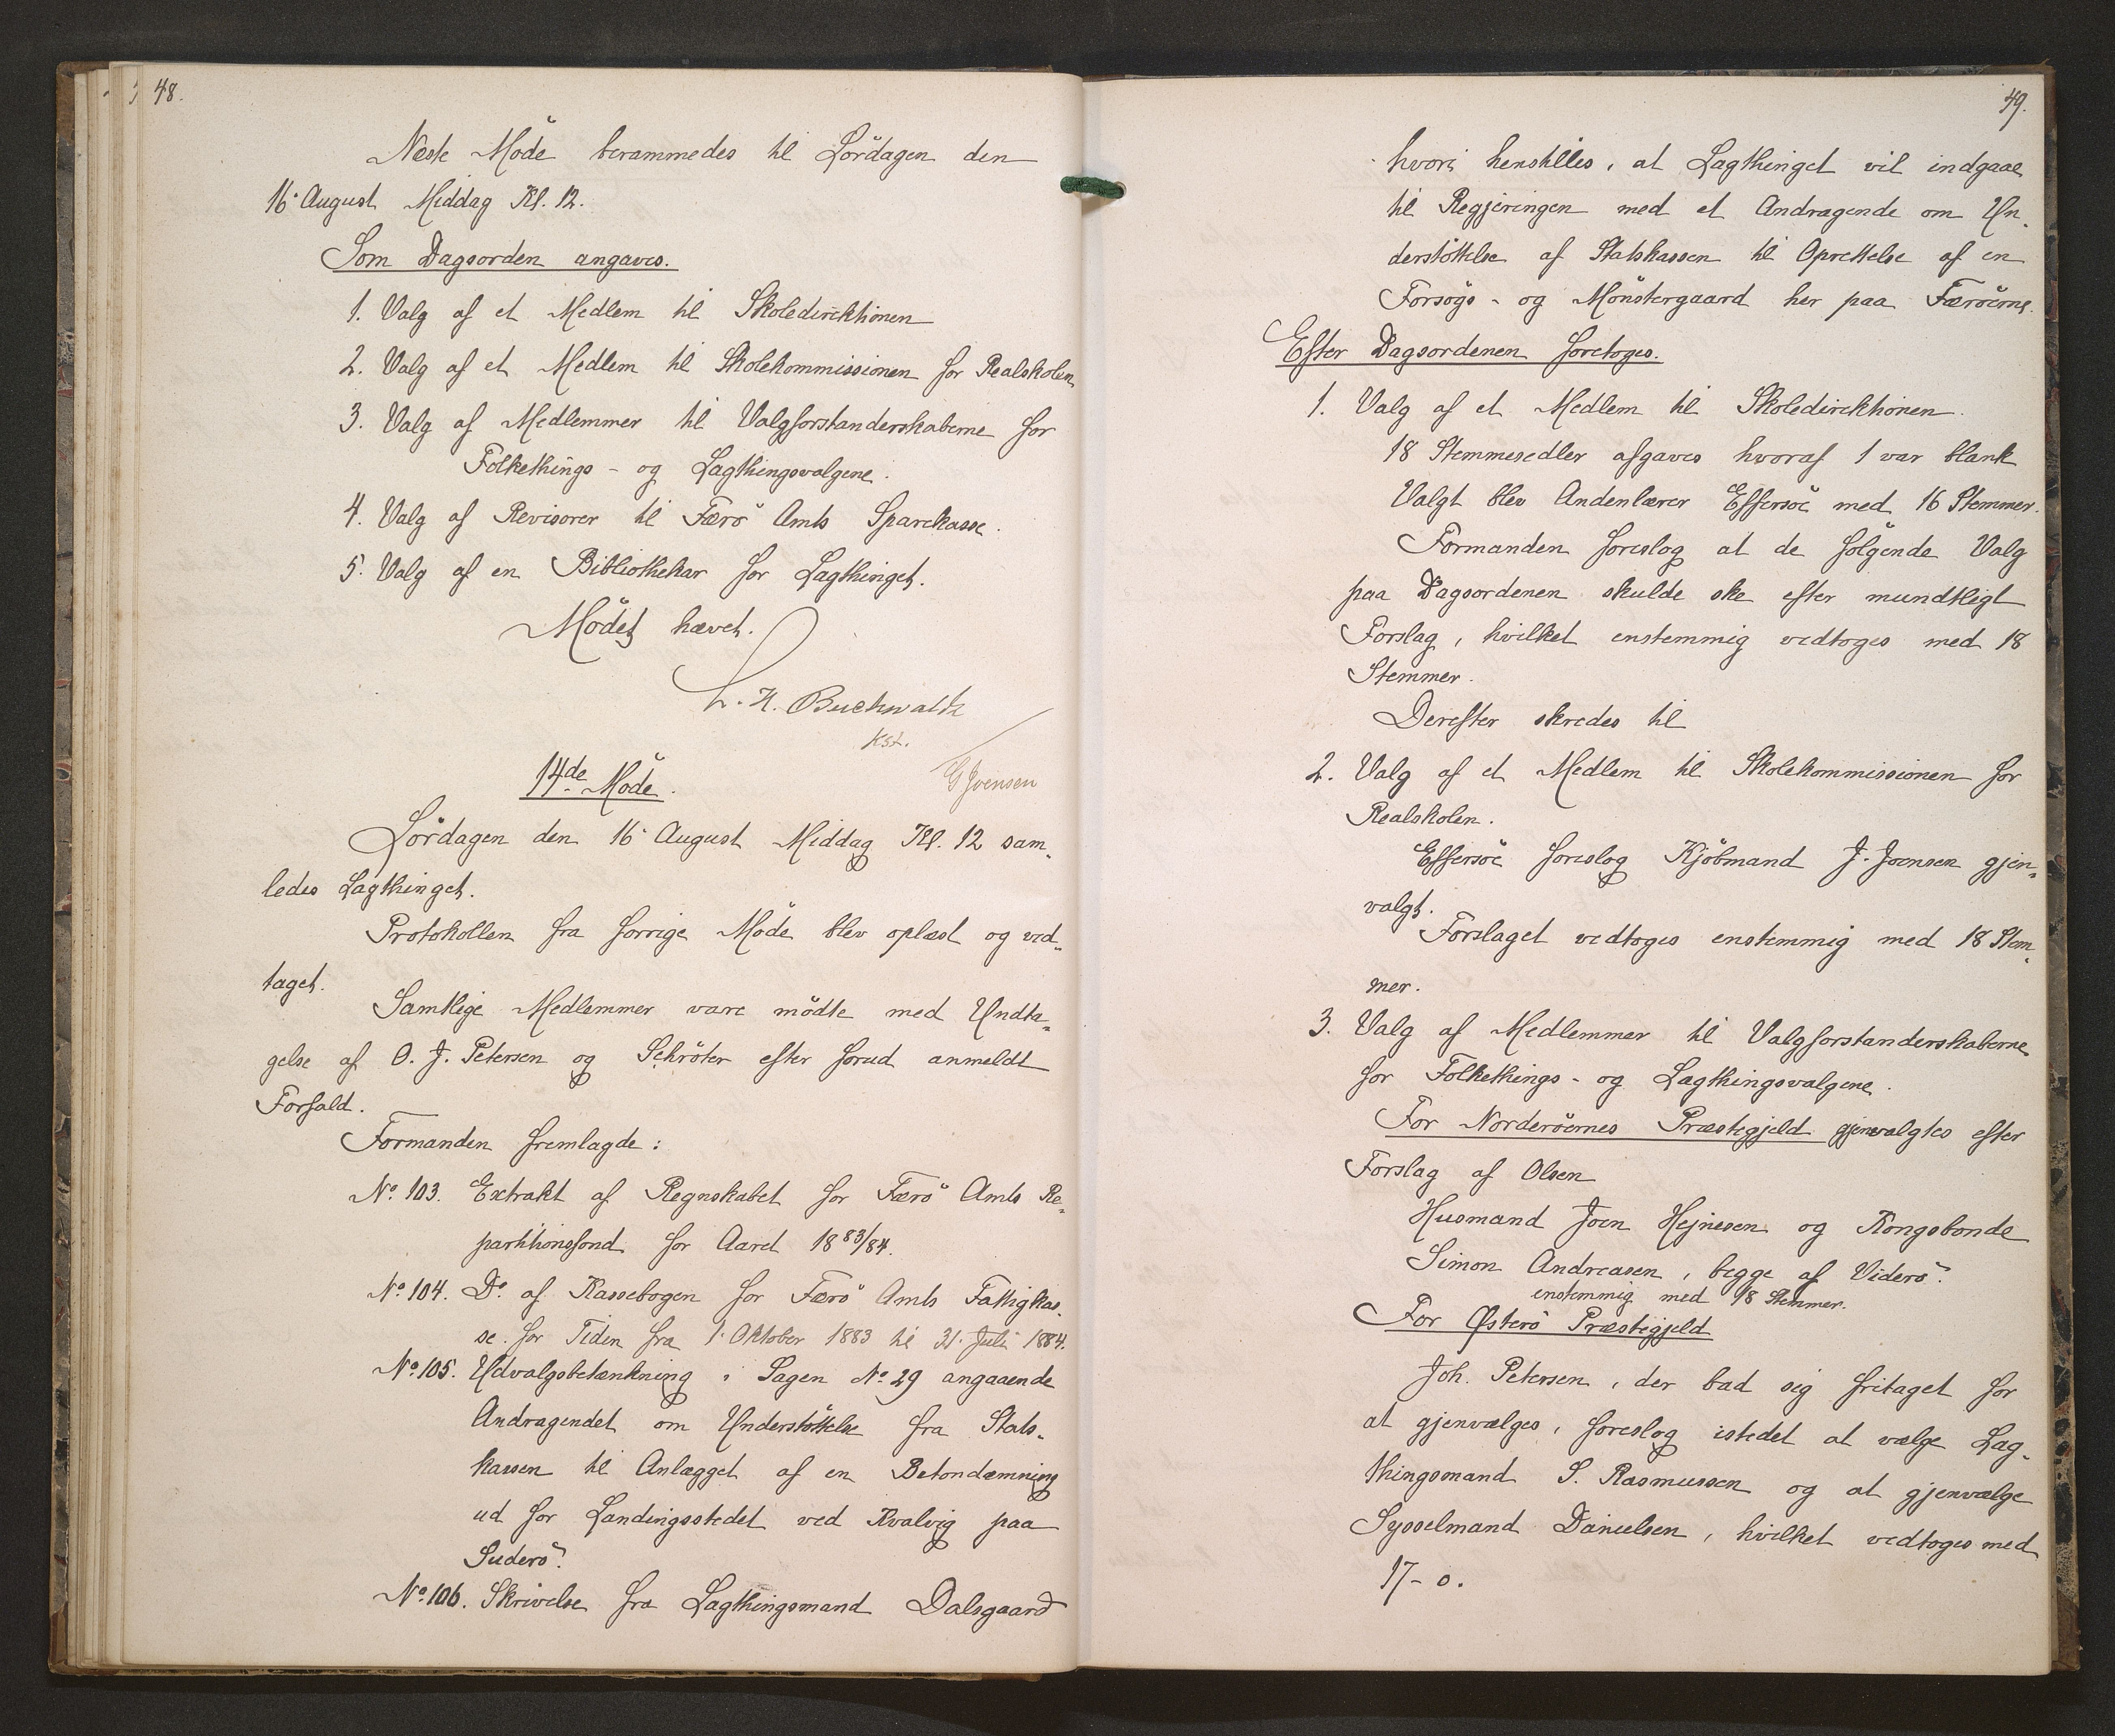 48.
Næste Möde berammedes til Lördagen den
16' August Middag Kl. 12.
Som Dagsorden angaves.
1. Valg af et Medlem til Skoledirektionen
2. Valg af et Medlem til Skolekommissionen for Realskolen
3. Valg af Medlemmer til Valgforstanderskaberne for
Folkethings- og Lagthingsvalgene.
4. Valg af Revisorer til Færö Amts Sparekasse.
5. Valg af en Bibliothekar for Lagthinget.
Mödet hævet.
L. H. Buchwaldt
kst.
G Joensen
14de Möde.
Lördagen den 16' August Middag Kl. 12 sam„
ledes Lagthinget.
Protokollen fra forrige Möde blev oplæst og ved„
taget.
Samtlige Medlemmer vare mödte med Undta„
gelse af O. J. Petersen og Schröter efter forud anmeldt
Forfald.
Formanden fremlagde:
No. 103. Extrakt af Regnskabet for Færö Amts Re„
partitionsfond for Aaret 1883/84.
No. 104. Do. af Kassebogen for Færö Amts Fattigkas„
se for Tiden fra 1' Oktober 1883 til 31' Juli 1884.
No. 105. Udvalgsbetænkning i Sagen No. 29 angaaende
Andragendet om Understöttelse fra Stats„
kassen til Anlægget af en Betondæmning
ud for Landingsstedet ved Kvalvig paa
Suderö.
No. 106. Skrivelse fra Lagthingsmand Dalsgaard
49.
hvori henstilles, at Lagthinget vil indgaae
til Regjeringen med et Andragende om Un„
derstöttelse af Statskassen til Oprettelse af en
Forsögs- og Mönstergaard her paa Færöerne.
Efter Dagsordenen foretoges.
1. Valg af et Medlem til Skoledirektionen.
18 Stemmesedler afgaves hvoraf 1 var blank
Valgt blev Andenlærer Effersöe med 16 Stemmer.
Formanden foreslog at de fölgende Valg
paa Dagsordenen skulde ske efter mundtligt
Forslag, hvilket enstemmig vedtoges med 18
Stemmer.
Derefter skredes til
2. Valg af et Medlem til Skolekommissionen for
Realskolen.
Effersöe foreslog Kjöbmand J. Joensen gjen„
valgt.
Forslaget vedtoges enstemmig med 18 Stem„
mer.
3. Valg af Medlemmer til Valgforstanderskaberne
for Folkethings- og Lagthingsvalgene.
For Norderöernes Præstegjeld gjenvalgtes efter
Forslag af Olsen
Husmand Joen Hejnesen og Kongsbonde
Simon Andreasen, begge af Viderö.
enstemmig med 18 Stemmer.
For Østerö Præstegjeld
Joh. Petersen, der bad sig fritaget for
at gjenvælges, foreslog istedet at vælge Lag„
thingsmand S. Rasmussen og at gjenvælge
Sysselmand Danielsen, hvilket vedtoges med
17-0.